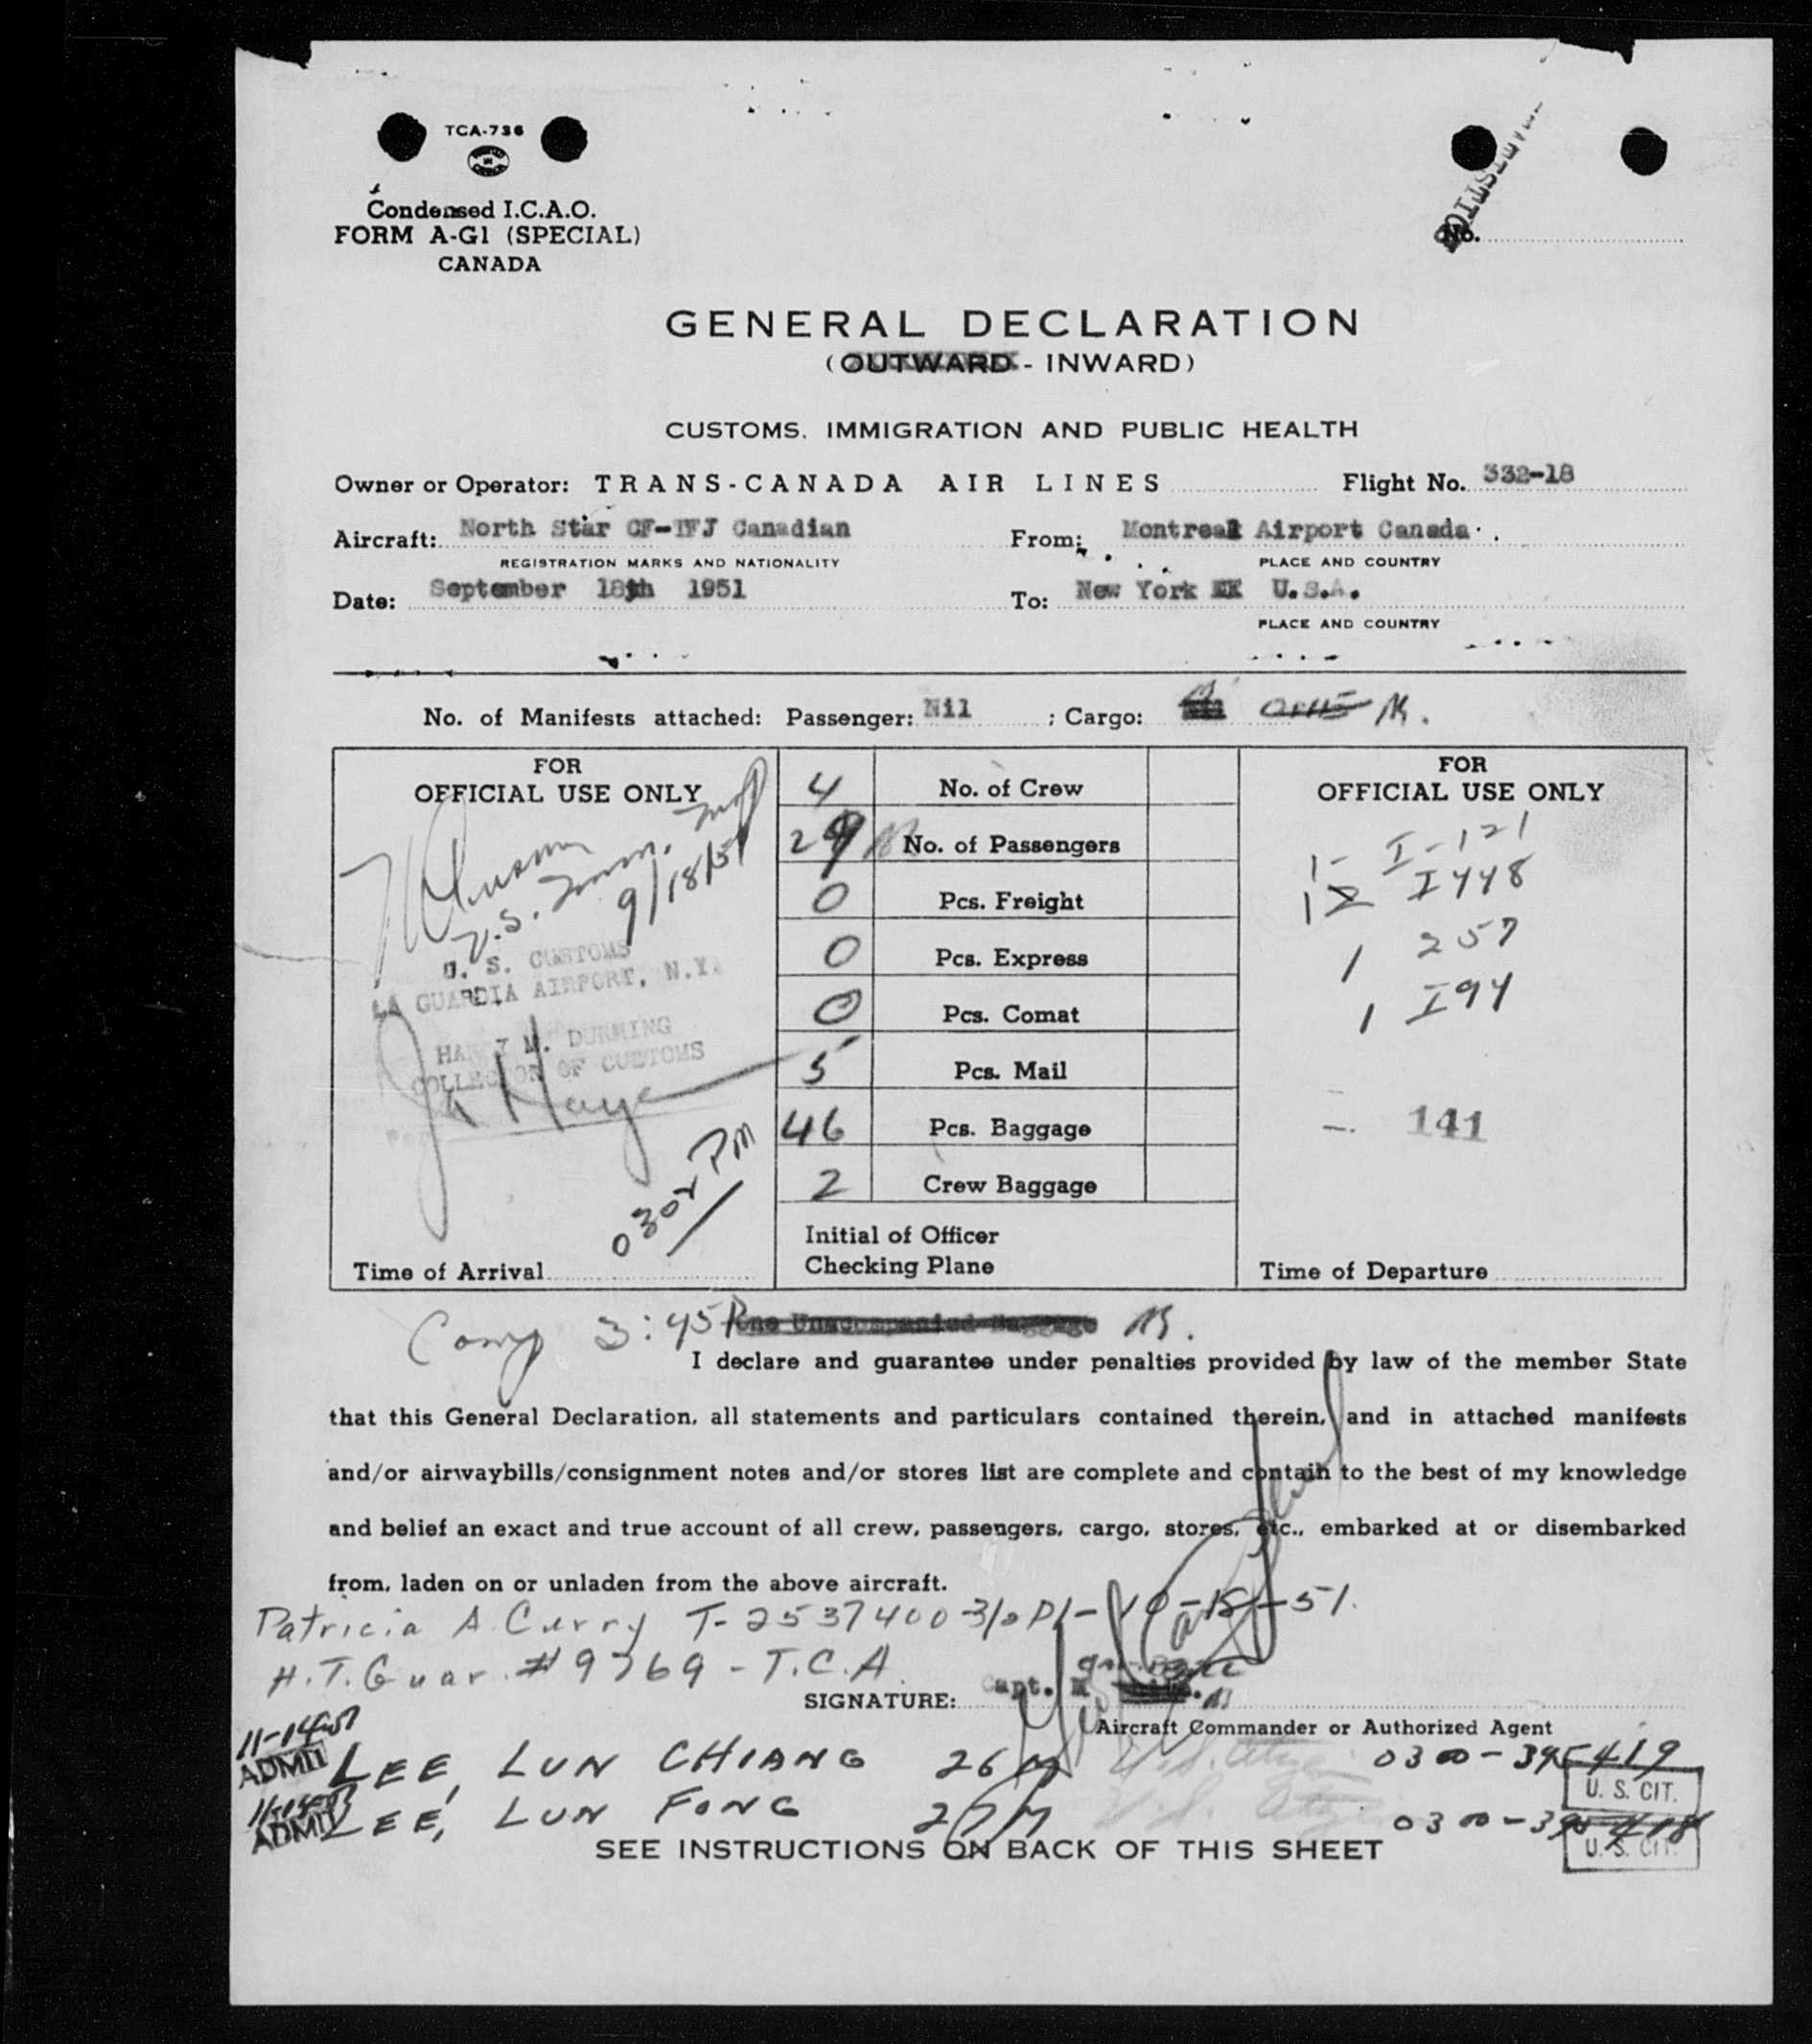 TCA-736
Condensed I.C.A.O.
FORM A-G1 (SPECIAL)
CANADA
STATISTICS
No.
GENERAL DECLARATION
(OUTWARD - INWARD)
CUSTOMS, IMMIGRATION AND PUBLIC HEALTH
Owner or Operator: TRANS-CANADA AIR LINES Flight No. 332-18
Aircraft: North Star CF-TFJ Canadian From: Montreal Airport Canada
REGISTRATION MARKS AND NATIONALITY PLACE AND COUNTRY
Date: September 18th 1951 To: New York U.S.A.
PLACE AND COUNTRY
No. of Manifests attached: Passenger: Nil ; Cargo:
FOR
OFFICIAL USE ONLY
U.S. Imm. Insp
9/18/51
U. S. CUSTOMS
LA GUARDIA AIRPORT, N.Y.
HARRY M. DURNING
COLLECTOR OF CUSTOMS
0302 PM
Time of Arrival
4 No. of Crew
29 No. of Passengers
0 Pcs. Freight
0 Pcs. Express
0 Pcs. Comat
5 Pcs. Mail
46 Pcs. Baggage
2 Crew Baggage
Initial of Officer
Checking Plane
FOR
OFFICIAL USE ONLY
1- I-121
12 I448
1 257
1 I94
141
Time of Departure
Comp 3:45P One Unaccompanied Baggage
I declare and guarantee under penalties provided by law of the member State
that this General Declaration, all statements and particulars contained therein, and in attached manifests
and/or airwaybills/consignment notes and/or stores list are complete and contain to the best of my knowledge
and belief an exact and true account of all crew, passengers, cargo, stores, etc., embarked at or disembarked
from, laden on or unladen from the above aircraft.
Patricia A Curry T-2537400
H.T. Guar. #9769 - T.C.A.
SIGNATURE: Capt.
Aircraft Commander or Authorized Agent
ADMIT LEE, LUN CHIANG 26 M U.S. Citizen 0300-395419
U. S. CIT.
ADMIT LEE, LUN FONG 27 M 0300-395418
U. S. CIT.
SEE INSTRUCTIONS ON BACK OF THIS SHEET